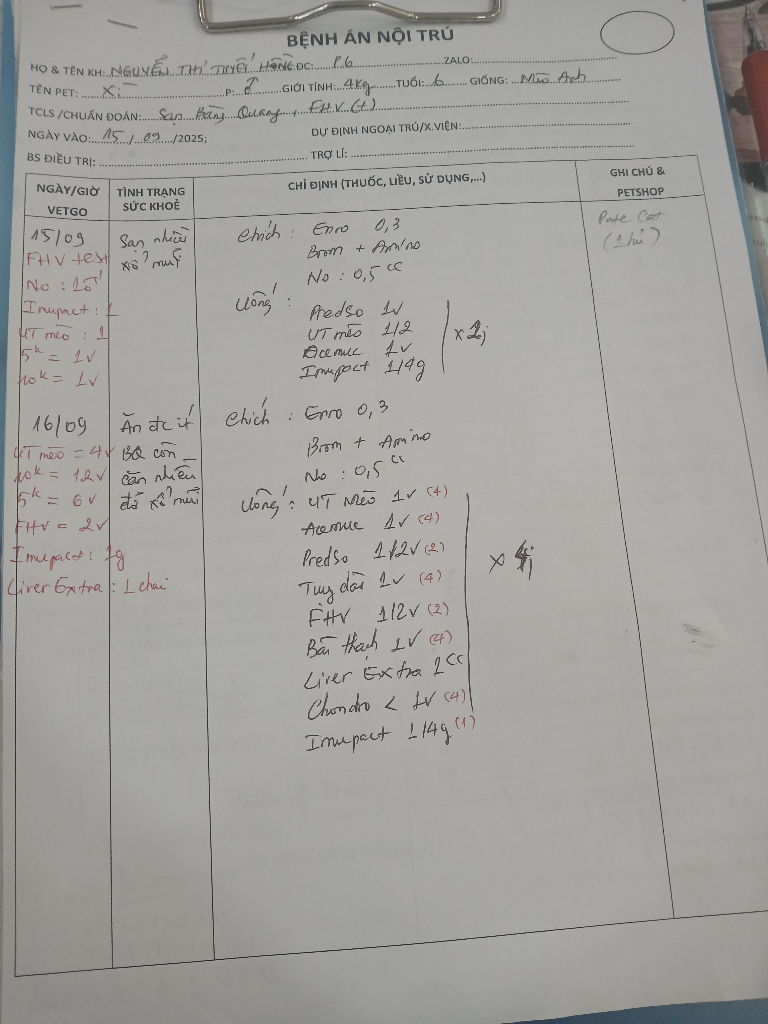 BỆNH ÁN NỘI TRÚ
HỌ & TÊN KH: NGUYỄN THỊ TUYẾT HỒNG ĐC: P.6 ZALO:
TÊN PET: Xí P: ♂ GIỚI TÍNH: 4kg TUỔI: 6 GIỐNG: Mèo Anh
TCLS /CHUẨN ĐOÁN: Sạn Bàng Quang, FHV (+)
NGÀY VÀO: 15 / 09 /2025; DỰ ĐỊNH NGOẠI TRÚ/X.VIỆN:
BS ĐIỀU TRỊ: TRỢ LÍ:
NGÀY/GIỜ VETGO
TÌNH TRẠNG SỨC KHOẺ
CHỈ ĐỊNH (THUỐC, LIỀU, SỬ DỤNG,...)
GHI CHÚ & PETSHOP
15/09
FHV test
No :
Imupact : 1
UT mèo : 1
5k = 1v
10k = 1v
Sạn nhiều
xổ mũi
Chích : Enro 0,3
Brom + Amino
No : 0,5 cc
Uống :
Predso 1v
UT mèo 1/2
Acemuc 1v
Imupact 1/4g
Pate Cat
(1 hủ)
16/09
UT mèo = 4v
10k = 12v
5k = 6v
FHV = 2v
Imupact : 1g
Liver Extra : 1 chai
Ăn đc ít
BQ còn
cặn nhiều
đỡ xổ mũi
Chích : Enro 0,3
Brom + Amino
No : 0,5 cc
Uống : UT Mèo 1v (4)
Acemuc 1v (4)
Predso 1/2v (2)
Tuy dài 1v (4)
FHV 1/2v (2)
Bài thạch 1v (4)
Liver Extra 1cc
Chondro < 1v (4)
Imupact 1/4g (1)